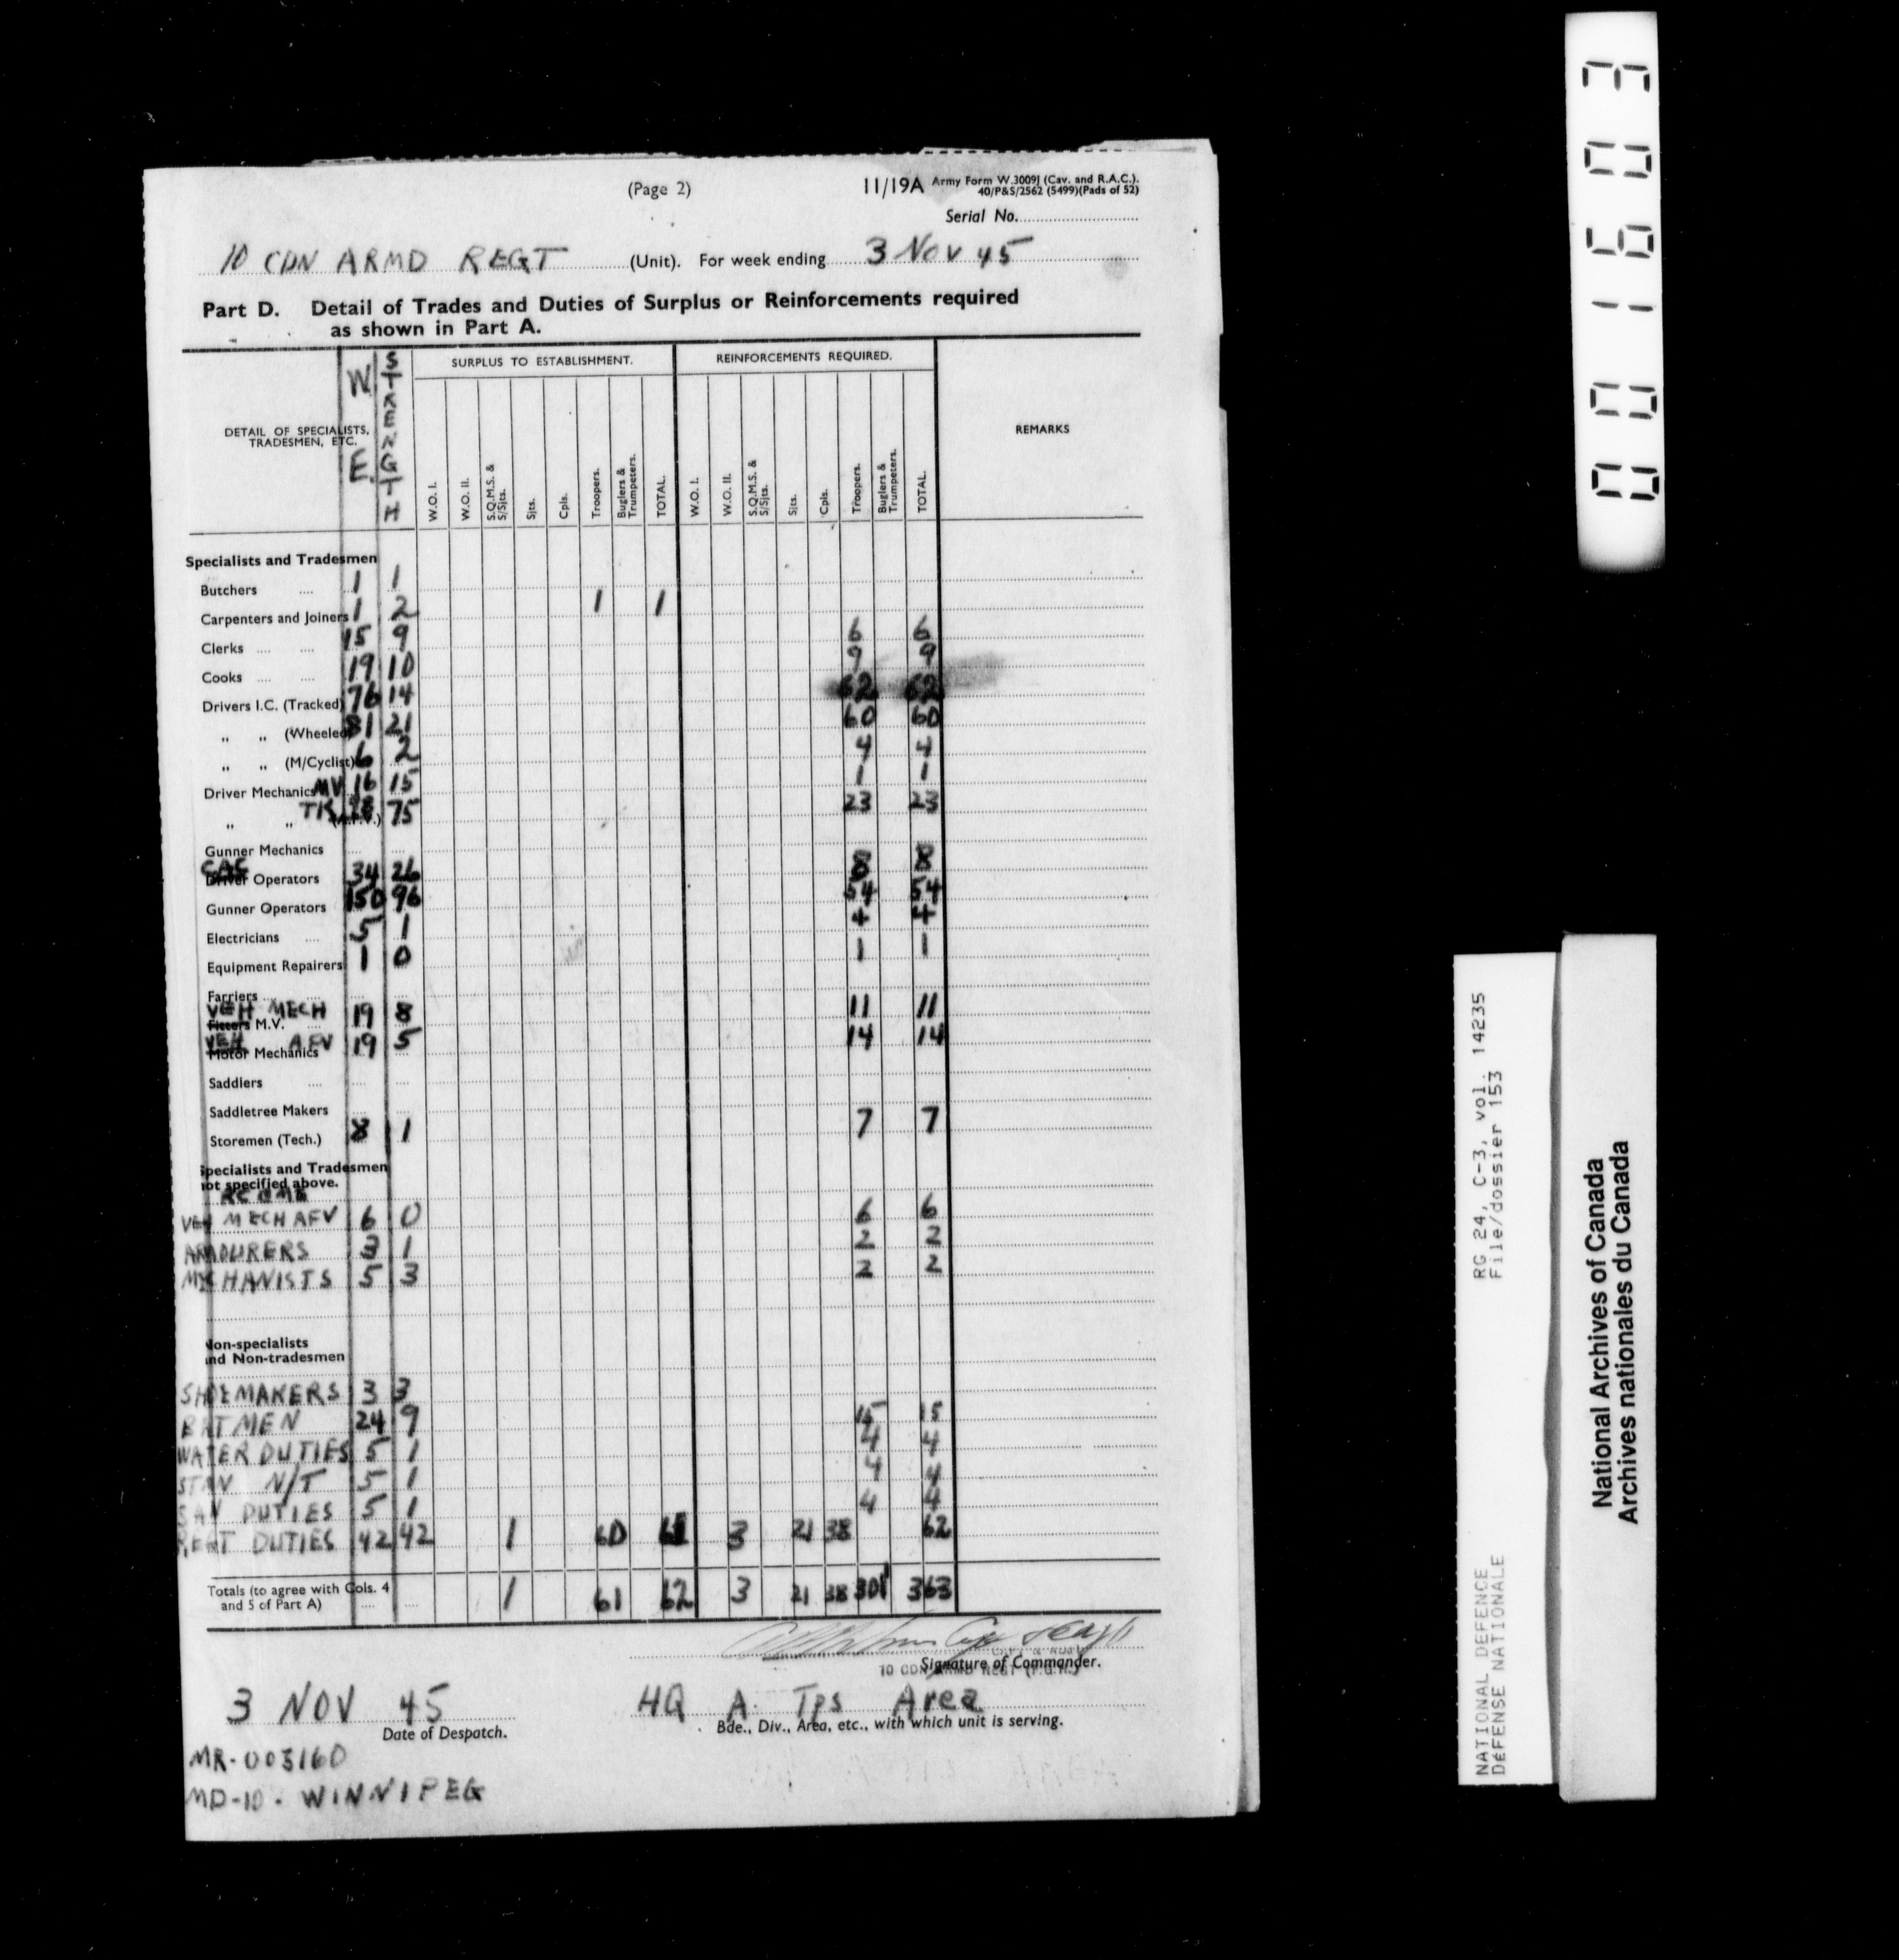 (Page 2)
11/19A Army Form W.3009J (Cav. and R.A.C.).
40/P&S/2562 (5499)(Pads of 52)
Serial No.
10 CDN ARMD REGT (Unit). For week ending 3 Nov 45
Part D. Detail of Trades and Duties of Surplus or Reinforcements required
as shown in Part A.
DETAIL OF SPECIALISTS, TRADESMEN, ETC. W.E. STRENGTH SURPLUS TO ESTABLISHMENT. REINFORCEMENTS REQUIRED. REMARKS
W.O. I. W.O. II. S.Q.M.S. & S/Sjts. Sjts. Cpls. Troopers. Buglers & Trumpeters. TOTAL. W.O. I. W.O. II. S.Q.M.S. & S/Sjts. Sjts. Cpls. Troopers. Buglers & Trumpeters. TOTAL.
Specialists and Tradesmen
Butchers 1 1
Carpenters and Joiners 1 2 1 1
Clerks 15 9 6 6
Cooks 19 10 9 9
Drivers I.C. (Tracked) 76 14 62 62
„ „ (Wheeled) 81 21 60 60
„ „ (M/Cyclist) 6 2 4 4
Driver Mechanics MV 16 15 1 1
„ „ TK 98 75 23 23
Gunner Mechanics
Driver Operators 34 26 8 8
Gunner Operators 150 96 54 54
Electricians 5 1 4 4
Equipment Repairers 1 0 1 1
Farriers
VEH MECH
Fitters M.V. 19 8 11 11
VEH AFV
Motor Mechanics 19 5 14 14
Saddlers
Saddletree Makers
Storemen (Tech.) 8 1 7 7
Specialists and Tradesmen
not specified above.
RCEME
VEH MECH AFV 6 0 6 6
ARMOURERS 3 1 2 2
MECHANISTS 5 3 2 2
Non-specialists
and Non-tradesmen
SHOEMAKERS 3 3
BATMEN 24 9 15 15
WATER DUTIES 5 1 4 4
N/T 5 1 4 4
SAN DUTIES 5 1 4 4
REGT DUTIES 42 42 1 60 61 3 21 38 62
Totals (to agree with Cols. 4
and 5 of Part A) 1 61 62 3 21 38 301 363
Signature of Commander.
3 NOV 45 HQ A Tps Area
Date of Despatch. Bde., Div., Area, etc., with which unit is serving.
MR-003160
MD-10 - WINNIPEG
001603
NATIONAL DEFENCE RG 24, C-3, vol. 14235
DéFENSE NATIONALE File/dossier 153
National Archives of Canada
Archives nationales du Canada